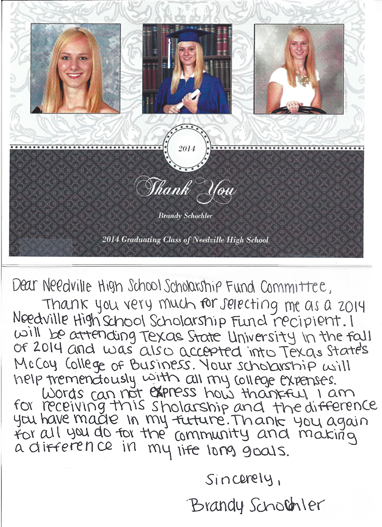 2014
Thank You
Brandy Schochler
2014 Graduating Class of Needville High School
Dear Needville High School Scholarship Fund Committee,
Thank you very much for selecting me as a 2014
Needville High School Scholarship Fund recipient. I
will be attending Texas State University in the fall
of 2014 and was also accepted into Texas State's
McCoy College of Business. Your scholarship will
help tremendously with all my college expenses.
Words can not express how thankful I am
for receiving this sholarship and the difference
you have made in my future. Thank you again
for all you do for the community and making
a difference in my life long goals.
Sincerely,
Brandy Schochler